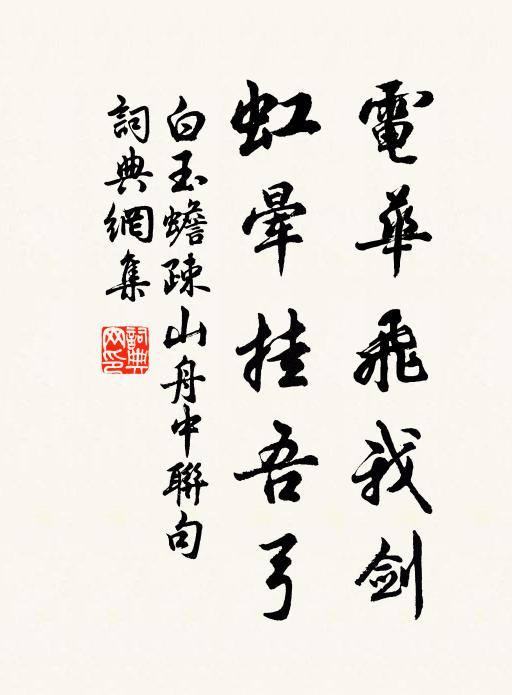 電華飛我劍
虹暈挂吾弓
白玉蟾疎山舟中聯句
詞典網集
詞典网印